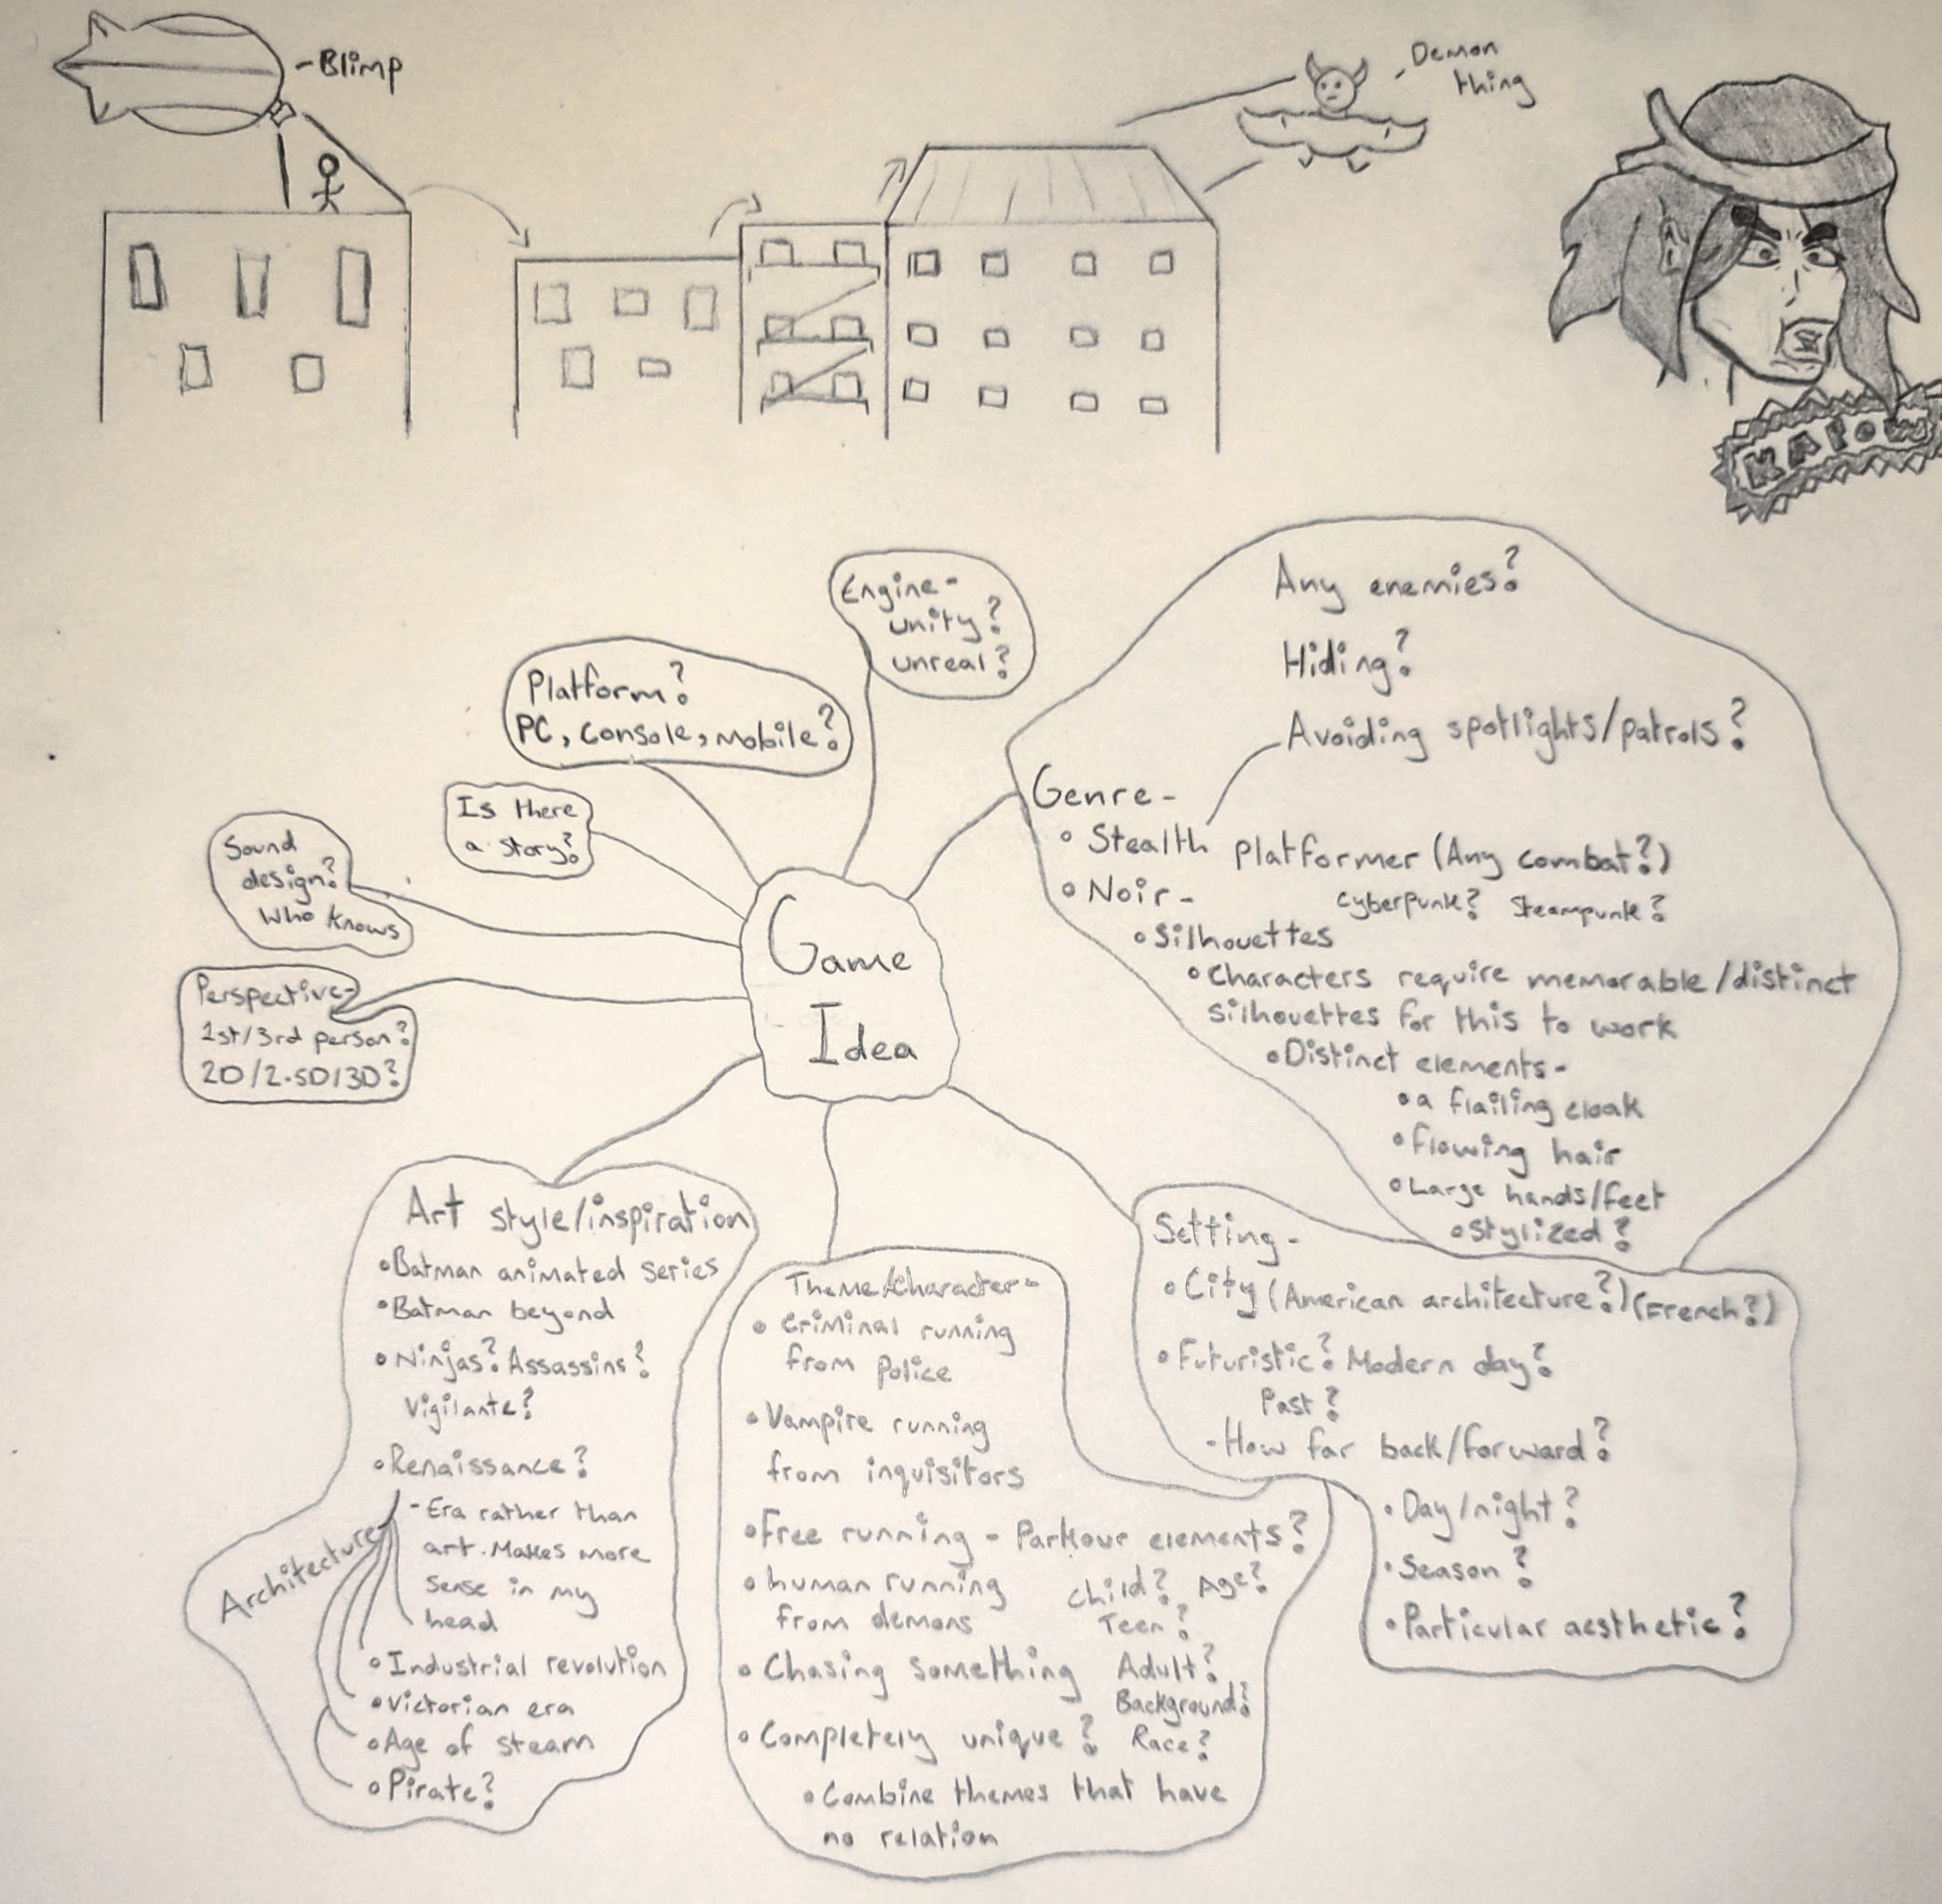 -Blimp
Demon
thing
KAPOW
Engine-
unity?
unreal?
Platform?
PC, console, mobile?
Is there
a story?
Sound
design?
Who knows
Perspective-
1st/3rd person?
2D/2.5D/3D?
Game
Idea
Any enemies?
Hiding?
Avoiding spotlights/patrols?
Genre-
• Stealth Platformer (Any combat?)
• Noir- Cyberpunk? Steampunk?
• Silhouettes
• Characters require memorable/distinct
silhouettes for this to work
• Distinct elements-
• a flailing cloak
• flowing hair
• Large hands/feet
• Stylized?
Setting-
• City (American architecture?) (French?)
• Futuristic? Modern day?
Past?
- How far back/forward?
• Day/night?
• Season?
• Particular aesthetic?
Theme/Character-
• Criminal running
from police
• Vampire running
from inquisitors
• Free running - Parkour elements?
• human running
from demons
Child? Age?
Teen?
Adult?
Background?
Race?
• Chasing something
• Completely unique?
• Combine themes that have
no relation
Art style/inspiration
• Batman animated series
• Batman beyond
• Ninjas? Assassins?
Vigilante?
• Renaissance?
- Era rather than
art. Makes more
sense in my
head
Architecture
• Industrial revolution
• Victorian era
• Age of steam
• Pirate?